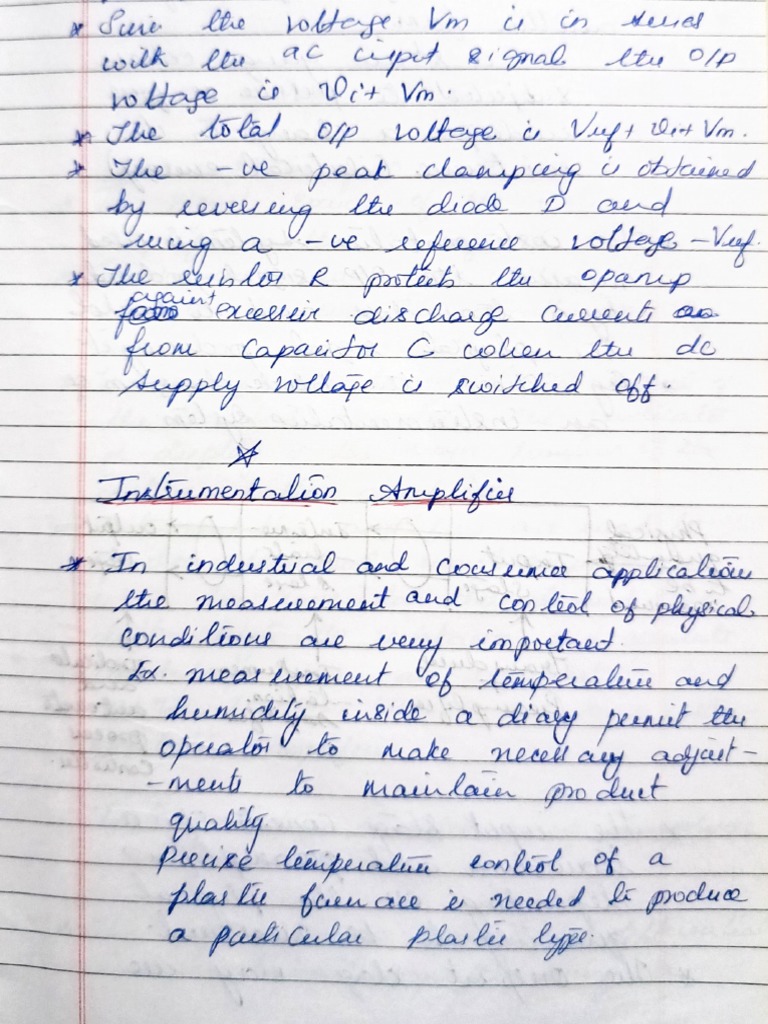 * Since the voltage Vm is in series
with the ac input signal the o/p
voltage is Vi+ Vm.
* The total o/p voltage is Vref+ Vi+ Vm.
* The -ve peak clamping is obtained
by reversing the diode D and
using a -ve reference voltage -Vref.
* The resistor R protects the opamp
against excessive discharge currents
from capacitor C when the dc
supply voltage is switched off.
Instrumentation Amplifier
* In industrial and consumer application
the measurement and control of physical
conditions are very important.
Ex. measurement of temperature and
humidity inside a diary permit the
operator to make necessary adjust-
-ments to maintain product
quality
precise temperature control of a
plastic furnace is needed to produce
a particular plastic type.